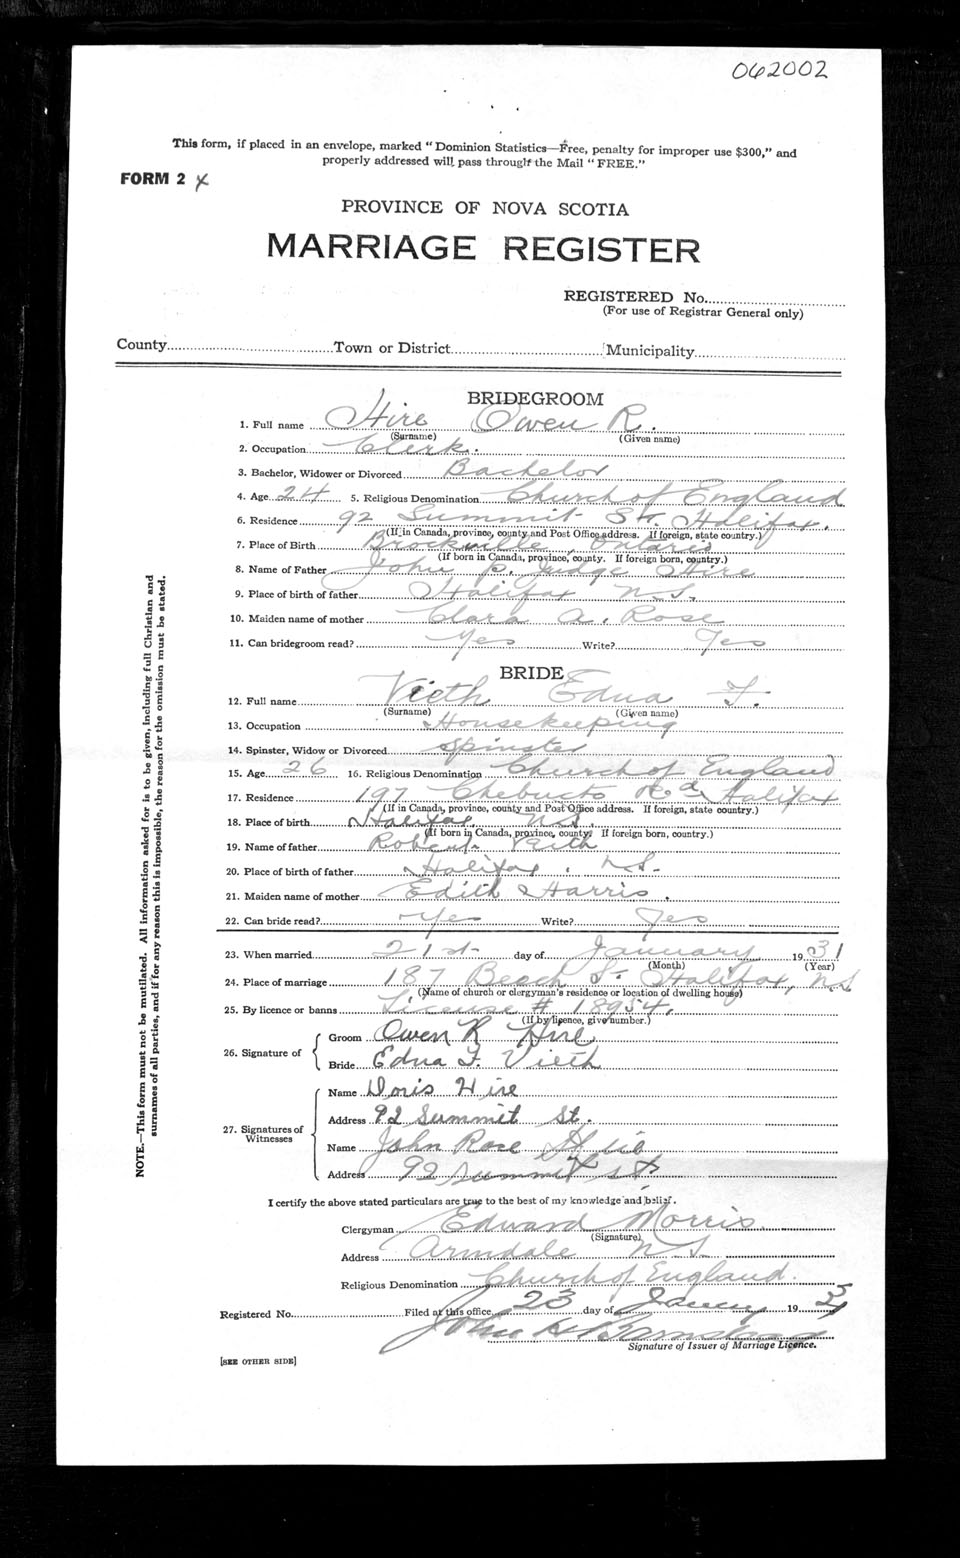 062002
This form, if placed in an envelope, marked "Dominion Statistics—Free, penalty for improper use $300," and
properly addressed will pass through the Mail "FREE."
FORM 2 x
PROVINCE OF NOVA SCOTIA
MARRIAGE REGISTER
REGISTERED No.
(For use of Registrar General only)
County Town or District Municipality
BRIDEGROOM
1. Full name Hire Owen R.
(Surname) (Given name)
2. Occupation Clerk.
3. Bachelor, Widower or Divorced Bachelor
4. Age 24 5. Religious Denomination Church of England
6. Residence 92 Summit St. Halifax.
(If in Canada, province, county and Post Office address. If foreign, state country.)
7. Place of Birth Brockville, Ontario
(If born in Canada, province, county. If foreign born, country.)
8. Name of Father John P. Judge Hire
9. Place of birth of father Halifax N.S.
10. Maiden name of mother Clara A. Rose
11. Can bridegroom read? Yes Write? Yes
BRIDE
12. Full name Vieth Edna F.
(Surname) (Given name)
13. Occupation Housekeeping
14. Spinster, Widow or Divorced Spinster
15. Age 26 16. Religious Denomination Church of England
17. Residence 197 Chebucto Rd, Halifax
(If in Canada, province, county and Post Office address. If foreign, state country.)
18. Place of birth Halifax, N.S.
(If born in Canada, province, county. If foreign born, country.)
19. Name of father Robert Vieth
20. Place of birth of father Halifax. N.S.
21. Maiden name of mother Edith Harris.
22. Can bride read? Yes Write? Yes
23. When married 21st day of January 1931
(Month) (Year)
24. Place of marriage 187 Beech St. Halifax, N.S.
(Name of church or clergyman's residence or location of dwelling house)
25. By licence or banns License # 18954.
(If by licence, give number.)
26. Signature of
Groom Owen R Hire
Bride Edna F. Vieth
27. Signatures of Witnesses
Name Doris Hire
Address 92 Summit St.
Name John Rose
Address 92 Summit St
I certify the above stated particulars are true to the best of my knowledge and belief.
Clergyman Edward Morris
(Signature)
Address Armdale N.S.
Religious Denomination Church of England.
Registered No. Filed at this office 23 day of 19
John
Signature of Issuer of Marriage Licence.
[SEE OTHER SIDE]
NOTE.—This form must not be mutilated. All information asked for is to be given, including full Christian and
surnames of all parties, and if for any reason this is impossible, the reason for the omission must be stated.